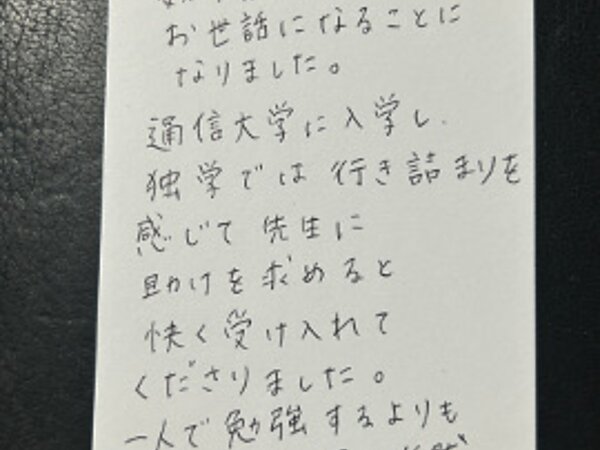 お世話になることに
なりました。
通信大学に入学し、
独学では行き詰まりを
感じて先生に
助けを求めると
快く受け入れて
くださりました。
一人で勉強するよりも